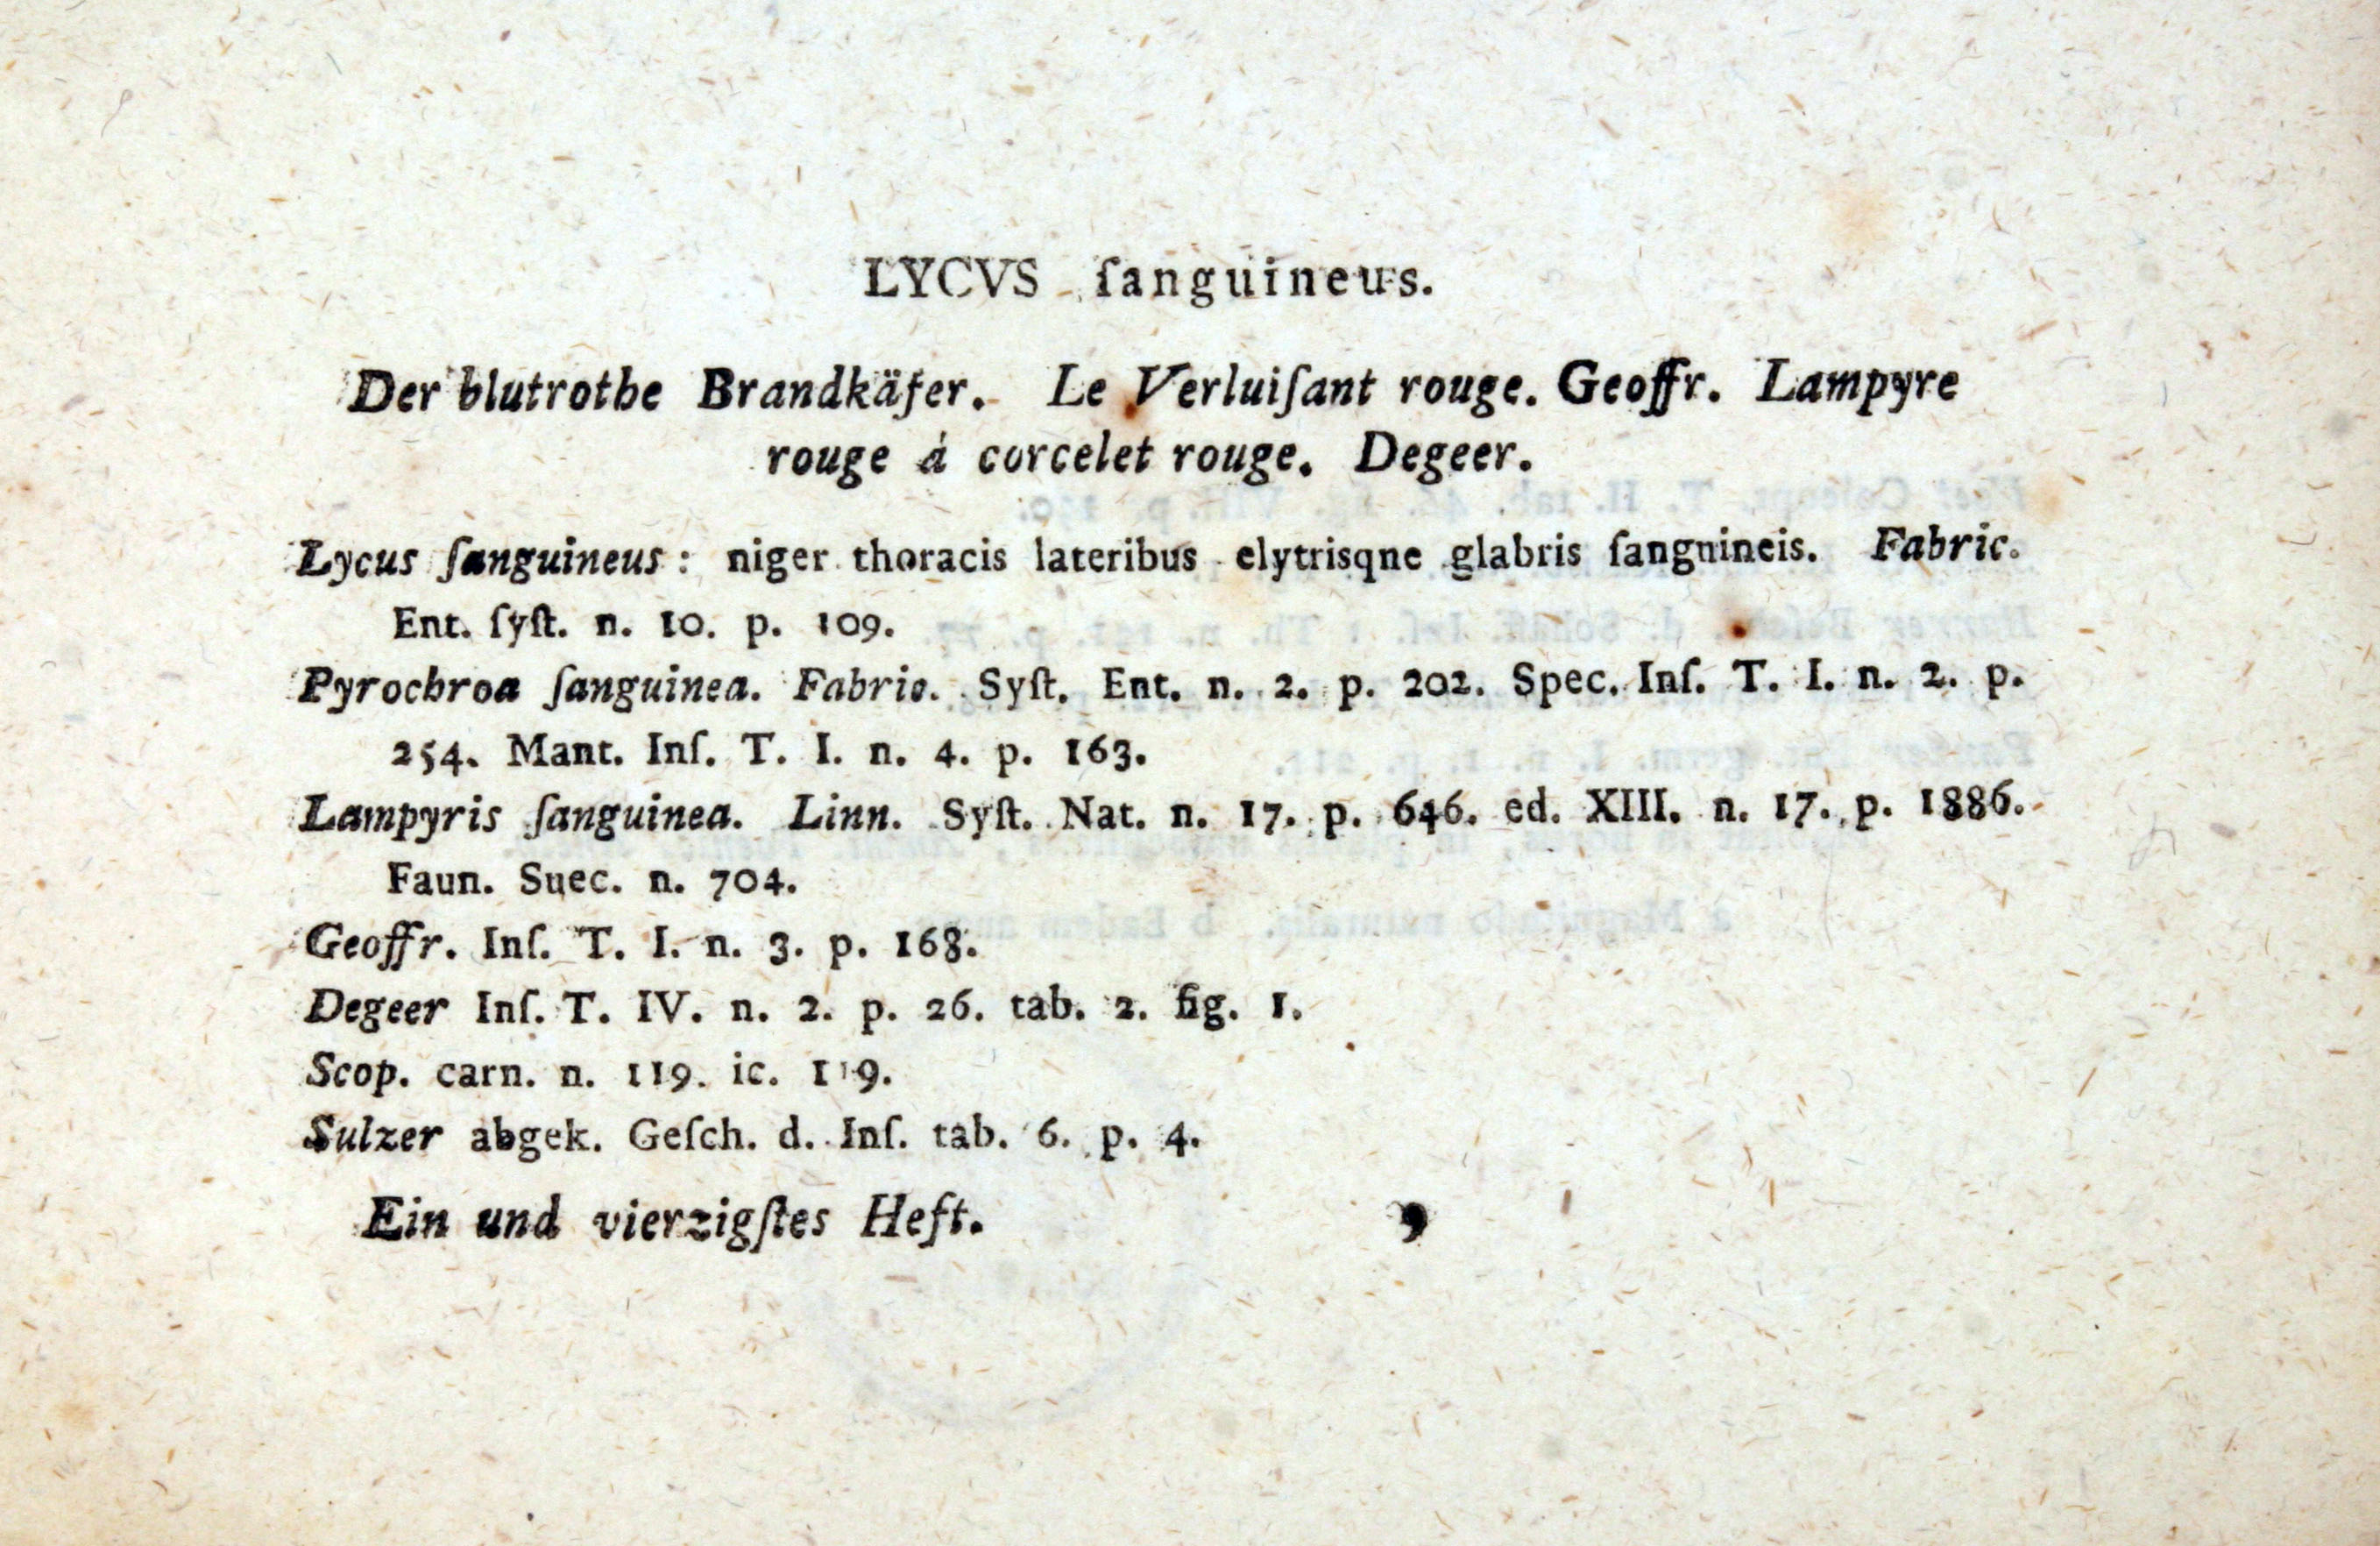 LYCVS ſanguineus.
Der blutrothe Brandkäfer. Le Verluiſant rouge. Geoffr. Lampyre
rouge à corcelet rouge. Degeer.
Lycus ſanguineus: niger thoracis lateribus elytrisqne glabris ſangnineis. Fabric.
Ent. ſyſt. n. 10. p. 109.
Pyrochroa ſanguinea. Fabric. Syſt. Ent. n. 2. p. 202. Spec. Inſ. T. I. n. 2. p.
254. Mant. Inſ. T. I. n. 4. p. 163.
Lampyris ſanguinea. Linn. Syſt. Nat. n. 17. p. 646. ed. XIII. n. 17. p. 1886.
Faun. Suec. n. 704.
Geoffr. Inſ. T. I. n. 3. p. 168.
Degeer Inſ. T. IV. n. 2. p. 26. tab. 2. fig. 1.
Scop. carn. n. 119. ic. 119.
Sulzer abgek. Geſch. d. Inſ. tab. 6. p. 4.
Ein und vierzigſtes Heft. 9